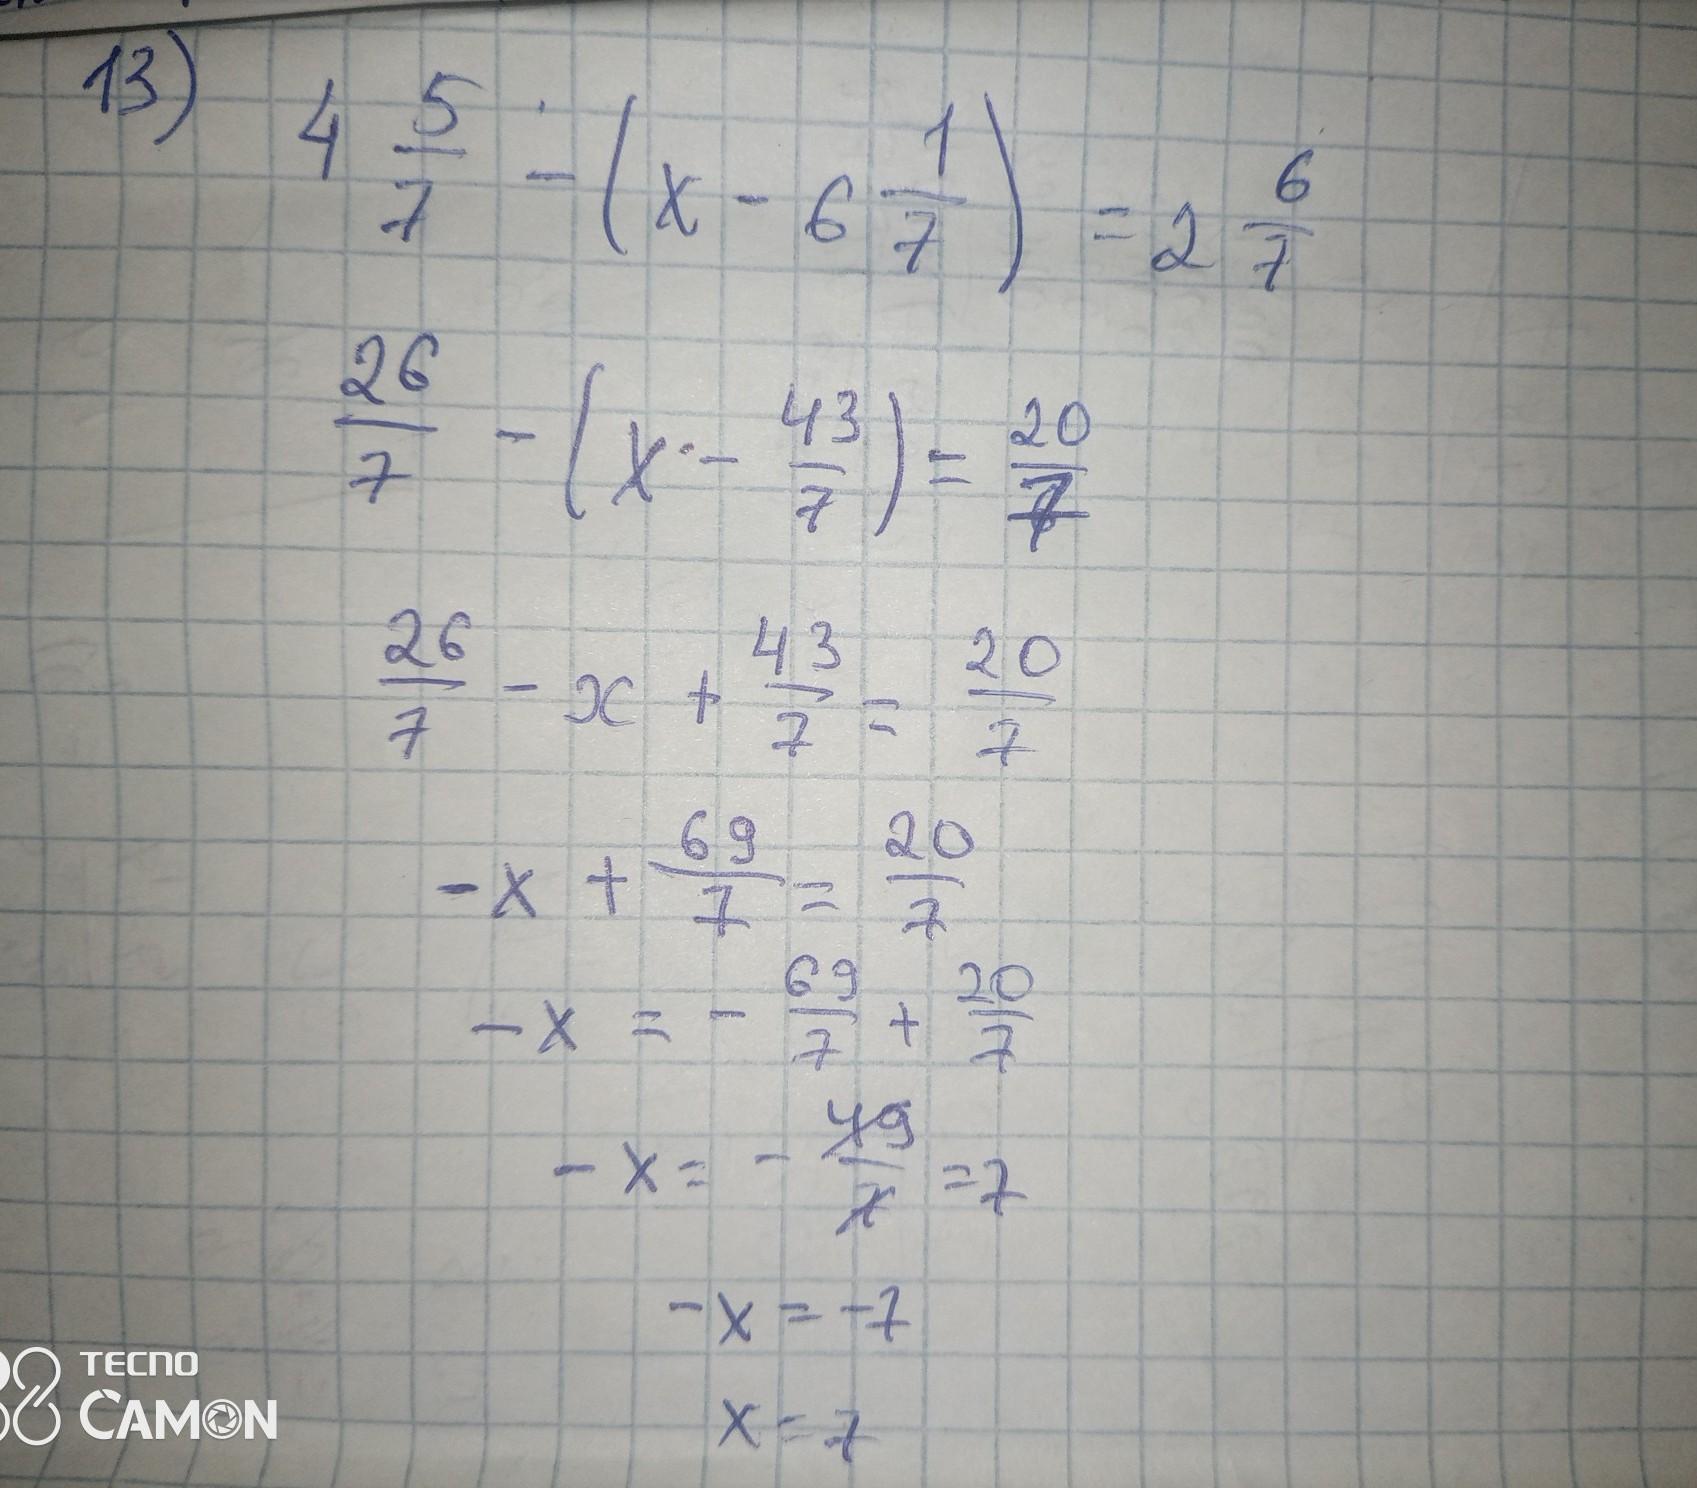 13) 4 5/7 - (x - 6 1/7) = 2 6/7
26/7 - (x - 43/7) = 20/7
26/7 - x + 43/7 = 20/7
-x + 69/7 = 20/7
-x = - 69/7 + 20/7
-x = - 49/7 = 7
-x = -7
x = 7
TECNO
CAMON